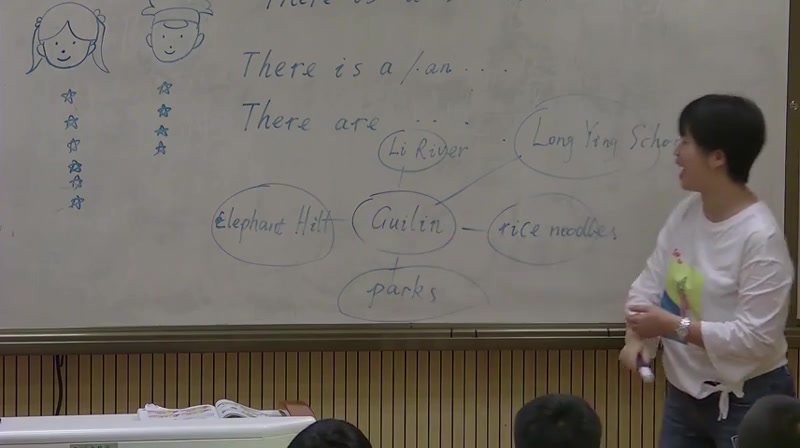 There is a
There is a / an ...
There are ...
Li River
Long Ying Scho
Elephant Hill
Guilin
rice noodles
parks